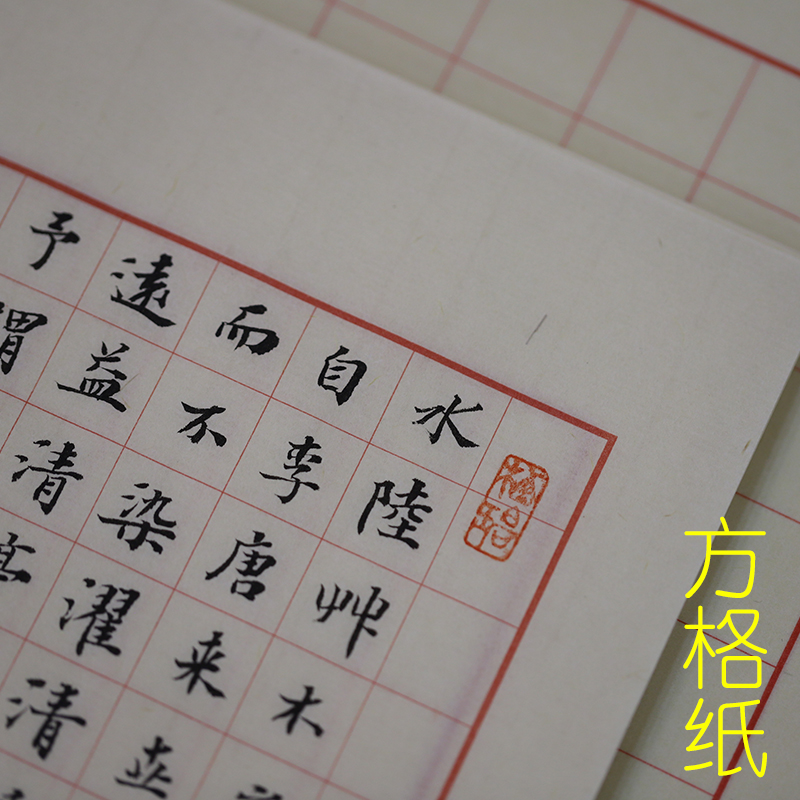 水陸艸木
自李唐来世
而不染濯清
遠益清
予謂
方格纸